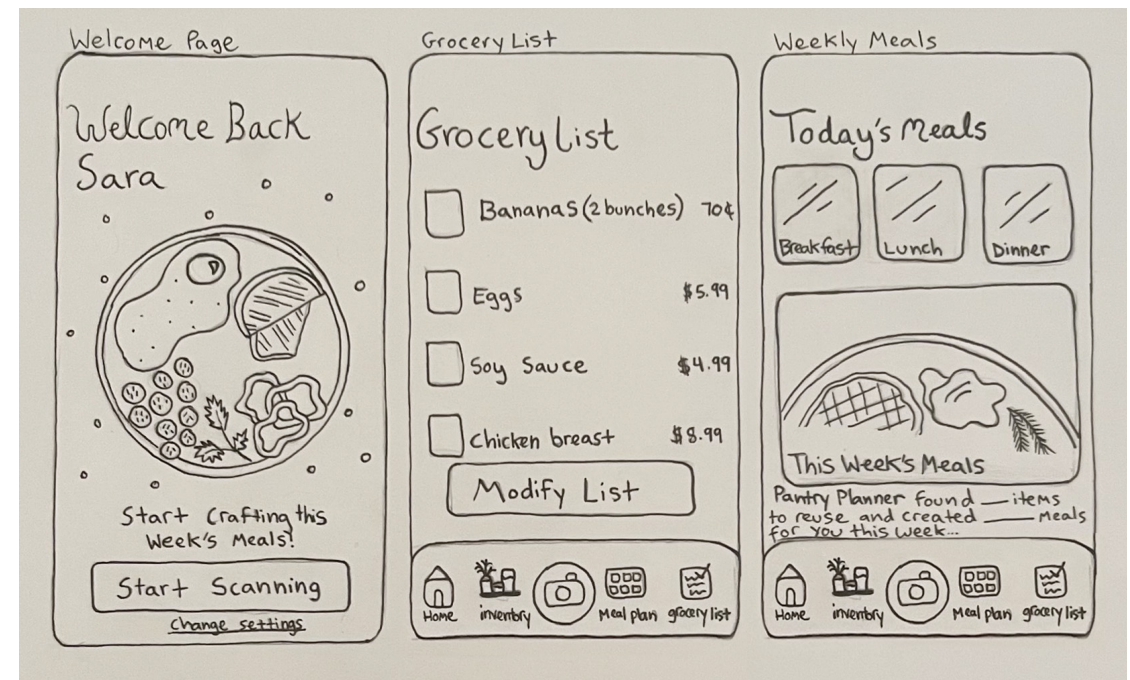 Welcome Page
Welcome Back
Sara
Start Crafting this
Week's Meals!
Start Scanning
Change settings
Grocery List
Grocery List
Bananas (2 bunches) 70¢
Eggs $5.99
Soy Sauce $4.99
Chicken breast $8.99
Modify List
Home inventory Meal plan grocery list
Weekly Meals
Today's Meals
Breakfast Lunch Dinner
This Week's Meals
Pantry Planner found ___ items
to reuse and created ____ Meals
for you this week...
Home inventory Meal plan grocery list